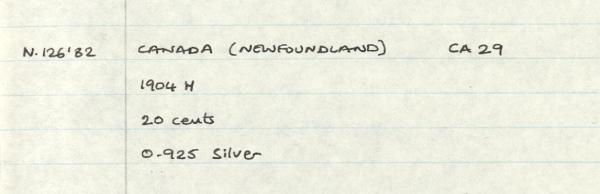 N.126'82 CANADA (NEWFOUNDLAND) CA 29
1904 H
20 cents
0.925 Silver